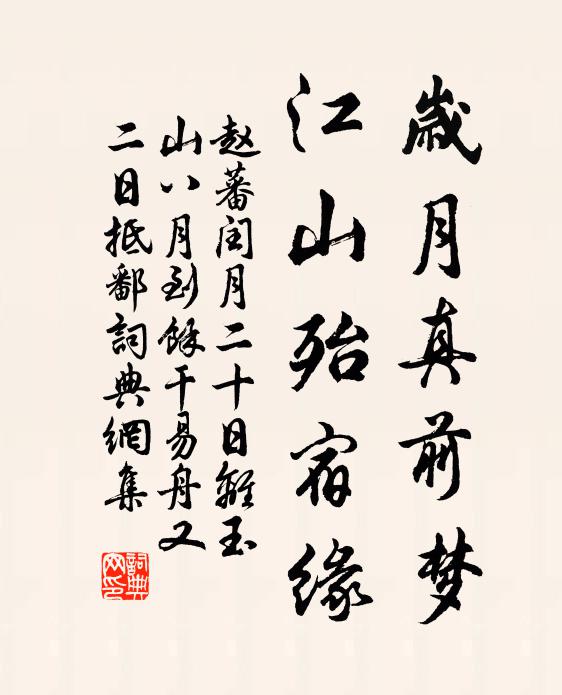 歲月真前梦
江山殆宿緣
赵蕃闰月二十日離玉
山八月到餘干易舟又
二日抵鄱詞典網集
詞典
网印